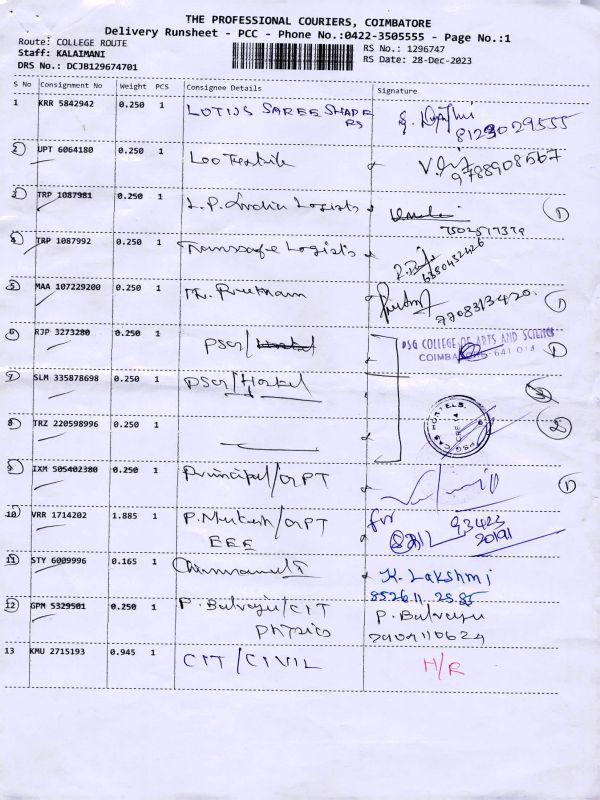 THE PROFESSIONAL COURIERS, COIMBATORE
Delivery Runsheet - PCC - Phone No.:0422-3505555 - Page No.:1
Route: COLLEGE ROUTE
Staff: KALAIMANI
DRS No.: DCJB129674701
RS No.: 1296747
RS Date: 28-Dec-2023
S No Consignment No Weight PCS Consignee Details Signature
1 KRR 5842942 0.250 1 LOTUS SAREE SHADE
RS
8129029555
2 UPT 6064180 0.250 1 Loo Textile
9788908567
3 TRP 1087981 0.250 1 L.P. India Logists 1
7502517379
4 TRP 1087992 0.250 1 Transsafe Logists
6380432426
5 MAA 107229200 0.250 1 Th. Preetham 1
7708313420.
6 RJP 3273280 0.250 1 PSG / PSG COLLEGE OF ARTS AND SCIENCE 1
COIMBATORE-641 014
7 SLM 335878698 0.250 1 PSG/Hostel 3
8 TRZ 220598996 0.250 1 2
CAS HOSTELS, PSG
9 IXM 505402380 0.250 1 Principal/GPT 1
10 VRR 1714202 1.885 1 P. Mukesh/GPT for
EEE 93423
20191
11 STY 6009996 0.165 1 K. Lakshmi
8526 11 25 85
12 GPM 5329501 0.250 1 P. Balraju/CIT P. Balraju
Physics
13 KMU 2715193 0.945 1 CIT/CIVIL H/R